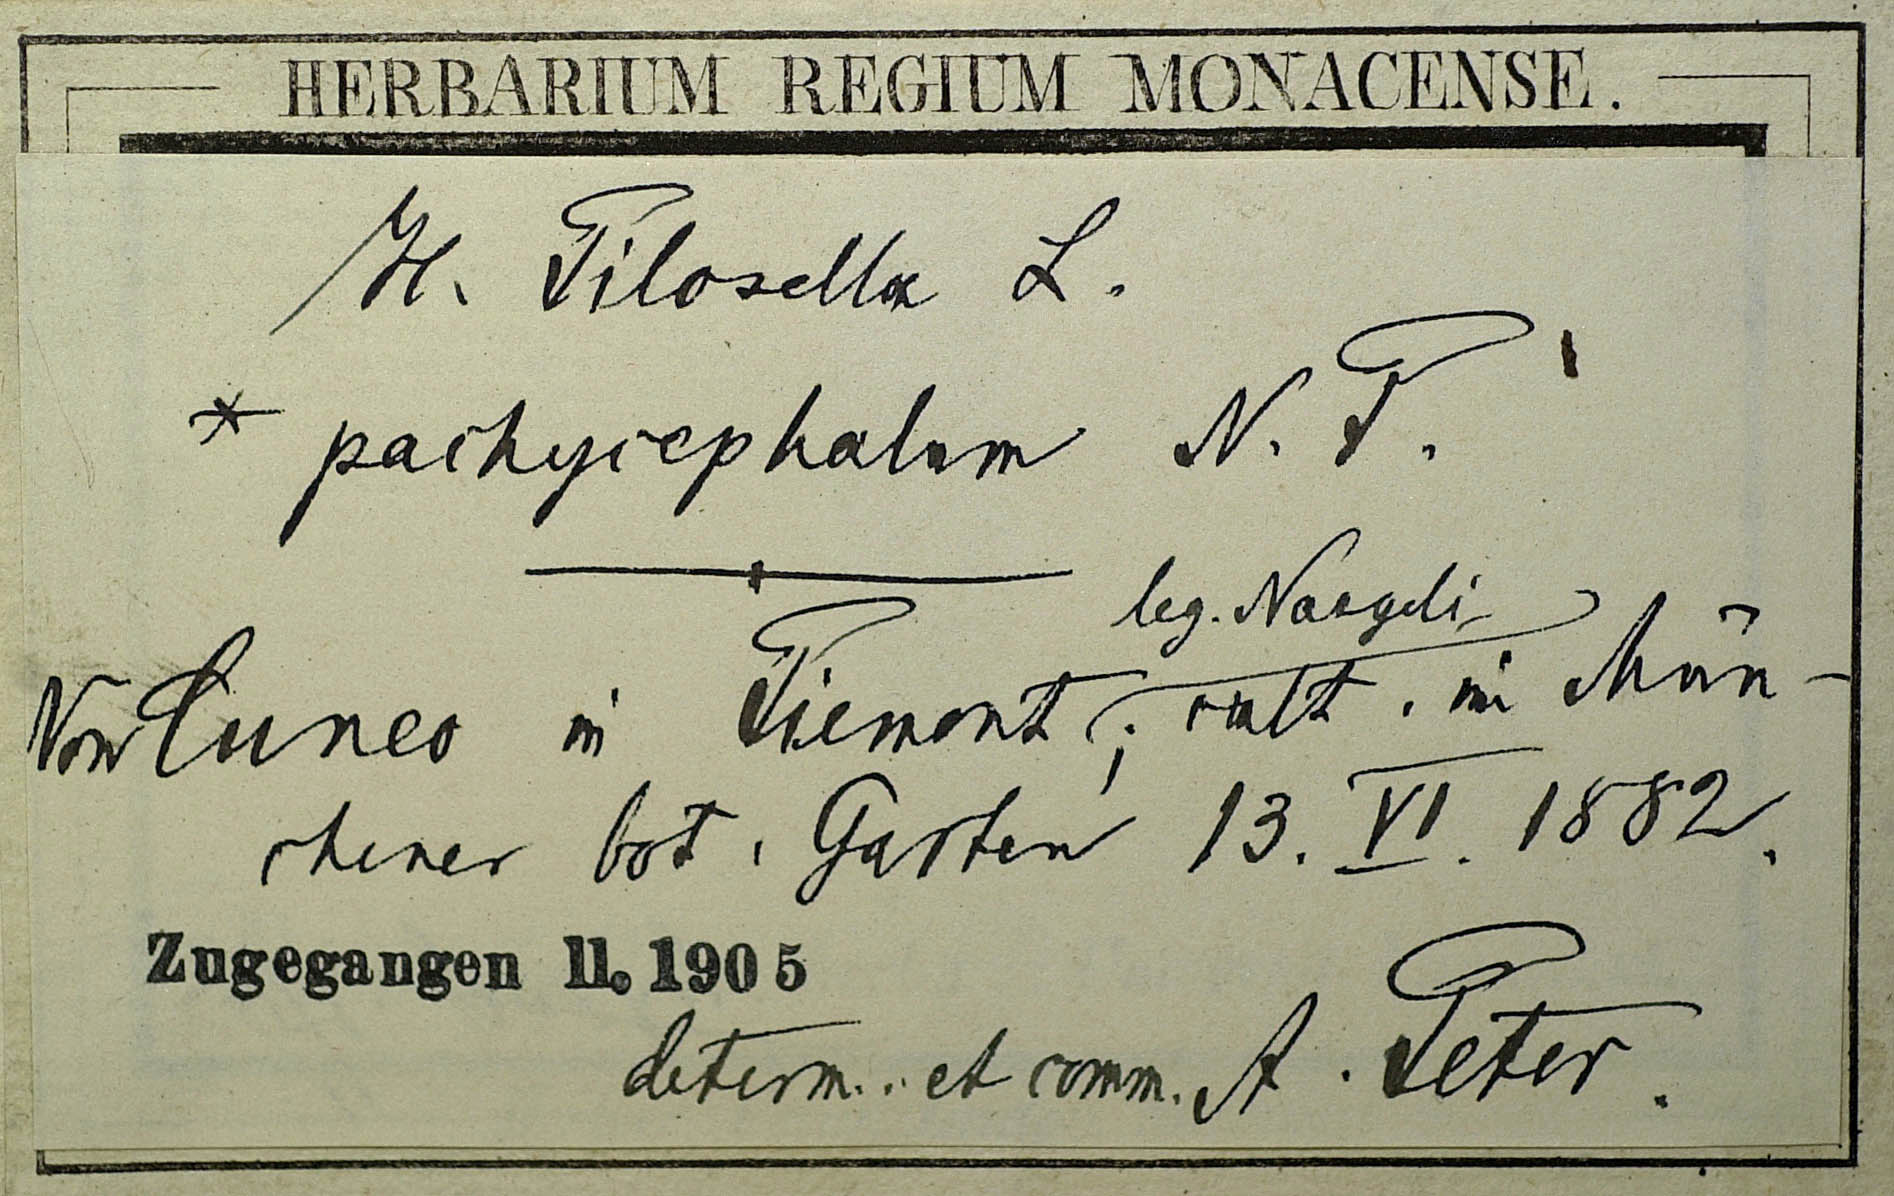 HERBARIUM REGIUM MONACENSE.
H. Pilosella L.
* pachycephalum N. P.
leg. Naegeli
Von Cuneo in Piemont; cult. im Mün-
chener bot. Garten 13. VI. 1882.
Zugegangen 11. 1905
determ. et comm. A. Peter.